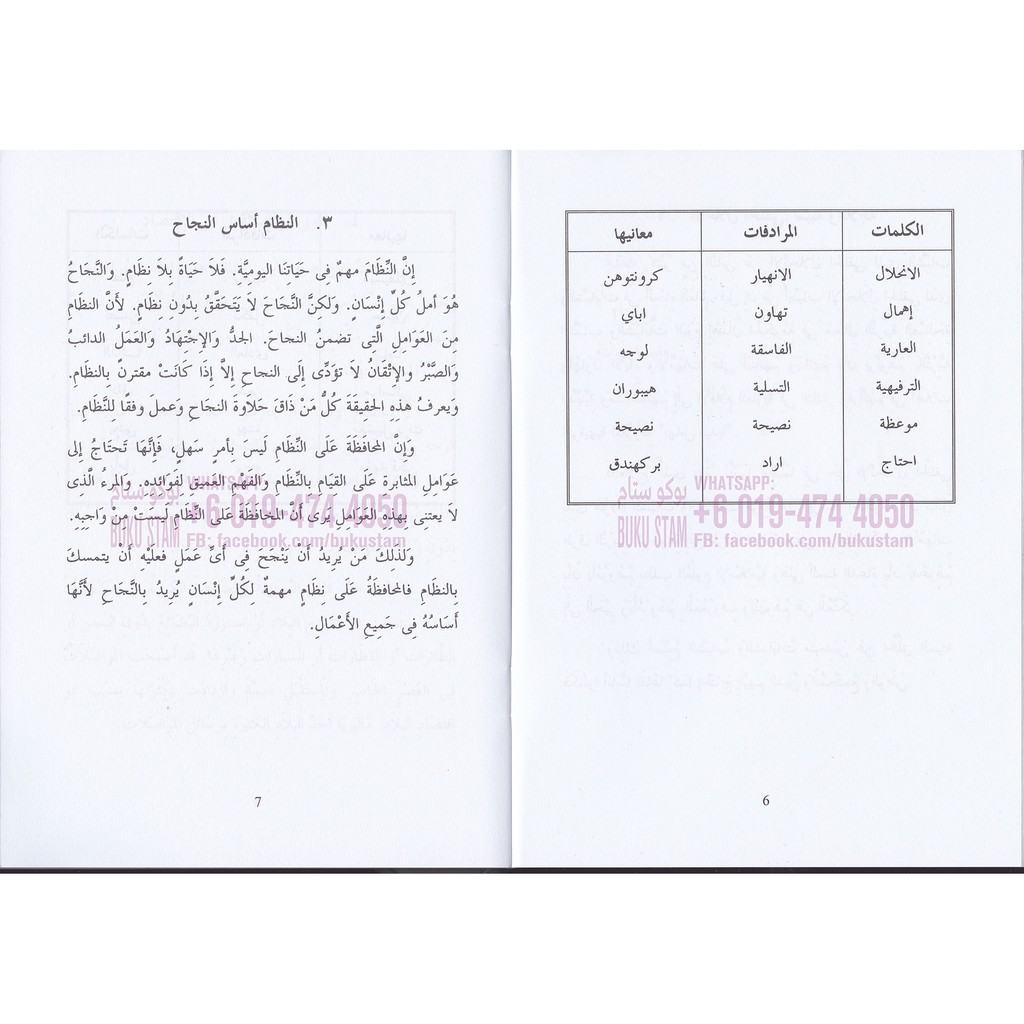 الكلمات المرادفات معانيها
الانحلال الانهيار كرونتوهن
إهمال تهاون اباي
العارية الفاسقة لوجه
الترفيهية التسلية هيبوران
موعظة نصيحة نصيحة
احتاج اراد بركهندق
بوكو ستام WHATSAPP:
BUKU STAM +6 019-474 4050
FB: facebook.com/bukustam
6
٣. النظام أساس النجاح
إِنَّ النِّظَامَ مهمٌ فِى حَيَاتِنَا اليوميَّة. فَلاَ حَيَاةً بِلاَ نِظَامٍ. وَالنَّجَاحُ
هُوَ أملُ كُلِّ إِنْسَانٍ. وَلكِنَّ النَّجَاحَ لاَ يَتَحَقَّقُ بِدُونِ نِظَامٍ. لأَنَّ النظام
مِنَ العَوَامِلِ الَّتِى تضمنُ النجاحَ. الجدُّ وَالإِجْتِهَادُ وَالعَمَلُ الدائبُ
وَالصَّبْرُ والإِتْقانُ لاَ تؤدِّى إِلَى النجاحِ إِلاَّ إِذَا كَانَتْ مقترنٌ بِالنظامِ.
وَيعرفُ هذِهِ الحقِيقَةَ كُلُّ مَنْ ذَاقَ حَلاَوةَ النجاحِ وَعملَ وفقًا للنِّظَامِ.
وَإِنَّ المحافَظَةَ عَلَى النِّظَامِ لَيسَ بِأمرٍ سَهلٍ، فَإِنَّهَا تَحتَاجُ إِلى
عَوَامِلِ المثابرةِ عَلَى القيَامِ بِالنِّظَامِ وَالفَهْمِ العميقِ لِفَوَائِده. وَالمرءُ الَّذِى
لاَ يَعتنِى بِهذِهِ العَوَامِلِ يَرَى أَنَّ المُحَافظَةَ عَلَى النِّظَامِ لَيسَتْ مِنْ وَاجِبِهِ.
وَلذلِكَ مَنْ يُرِيدُ أَنْ يَنْجَحَ فِى أَىِّ عَمَلٍ فعليْهِ أَنْ يتمسكَ
بِالنظامِ فالمحافظَةُ عَلَى نِظَامٍ مهمةٌ لِكُلِّ إِنْسَانٍ يُرِيدُ بِالنَّجَاحِ لأَنَّهَا
أَسَاسُهُ فِى جَمِيعِ الأَعْمَالِ.
بوكو ستام WHATSAPP:
BUKU STAM +6 019-474 4050
FB: facebook.com/bukustam
7